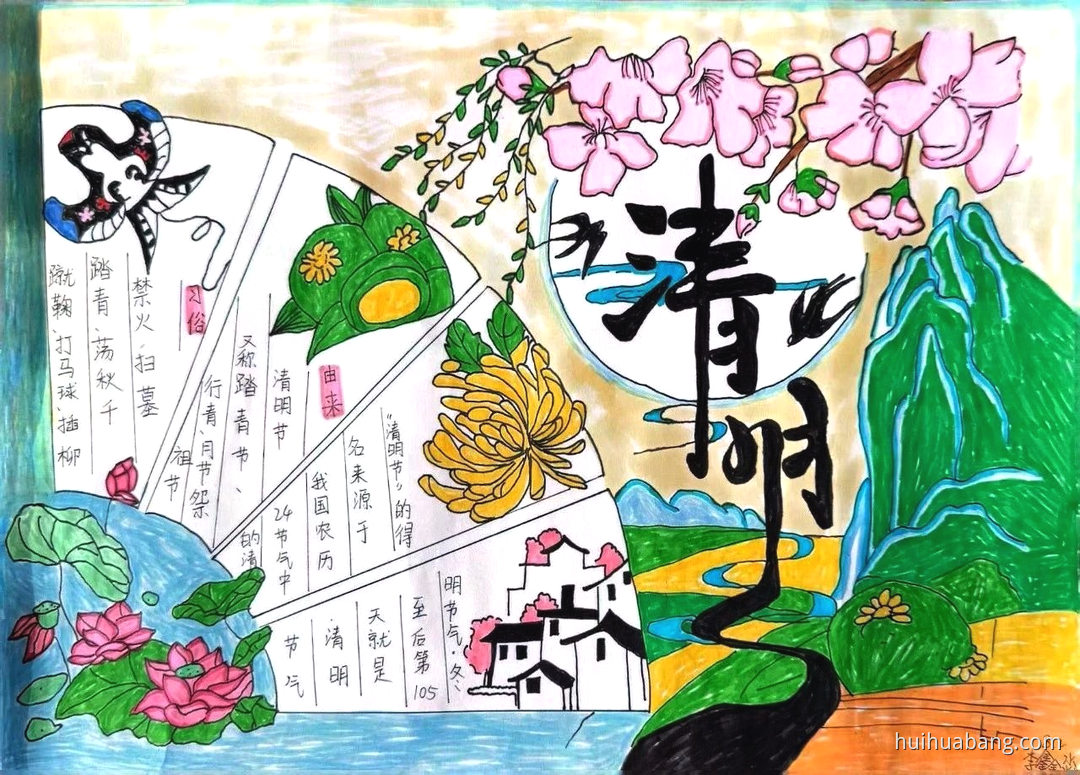 清明
习俗
禁火、扫墓
踏青、荡秋千
蹴鞠、打马球、插柳
由来
清明节
又称踏青节、
行青、月节祭
祖节
"清明节"的得
名来源于
我国农历
24节气中
的清
明节气·冬
至后第105
天就是
清明
节气
huihuabang.com